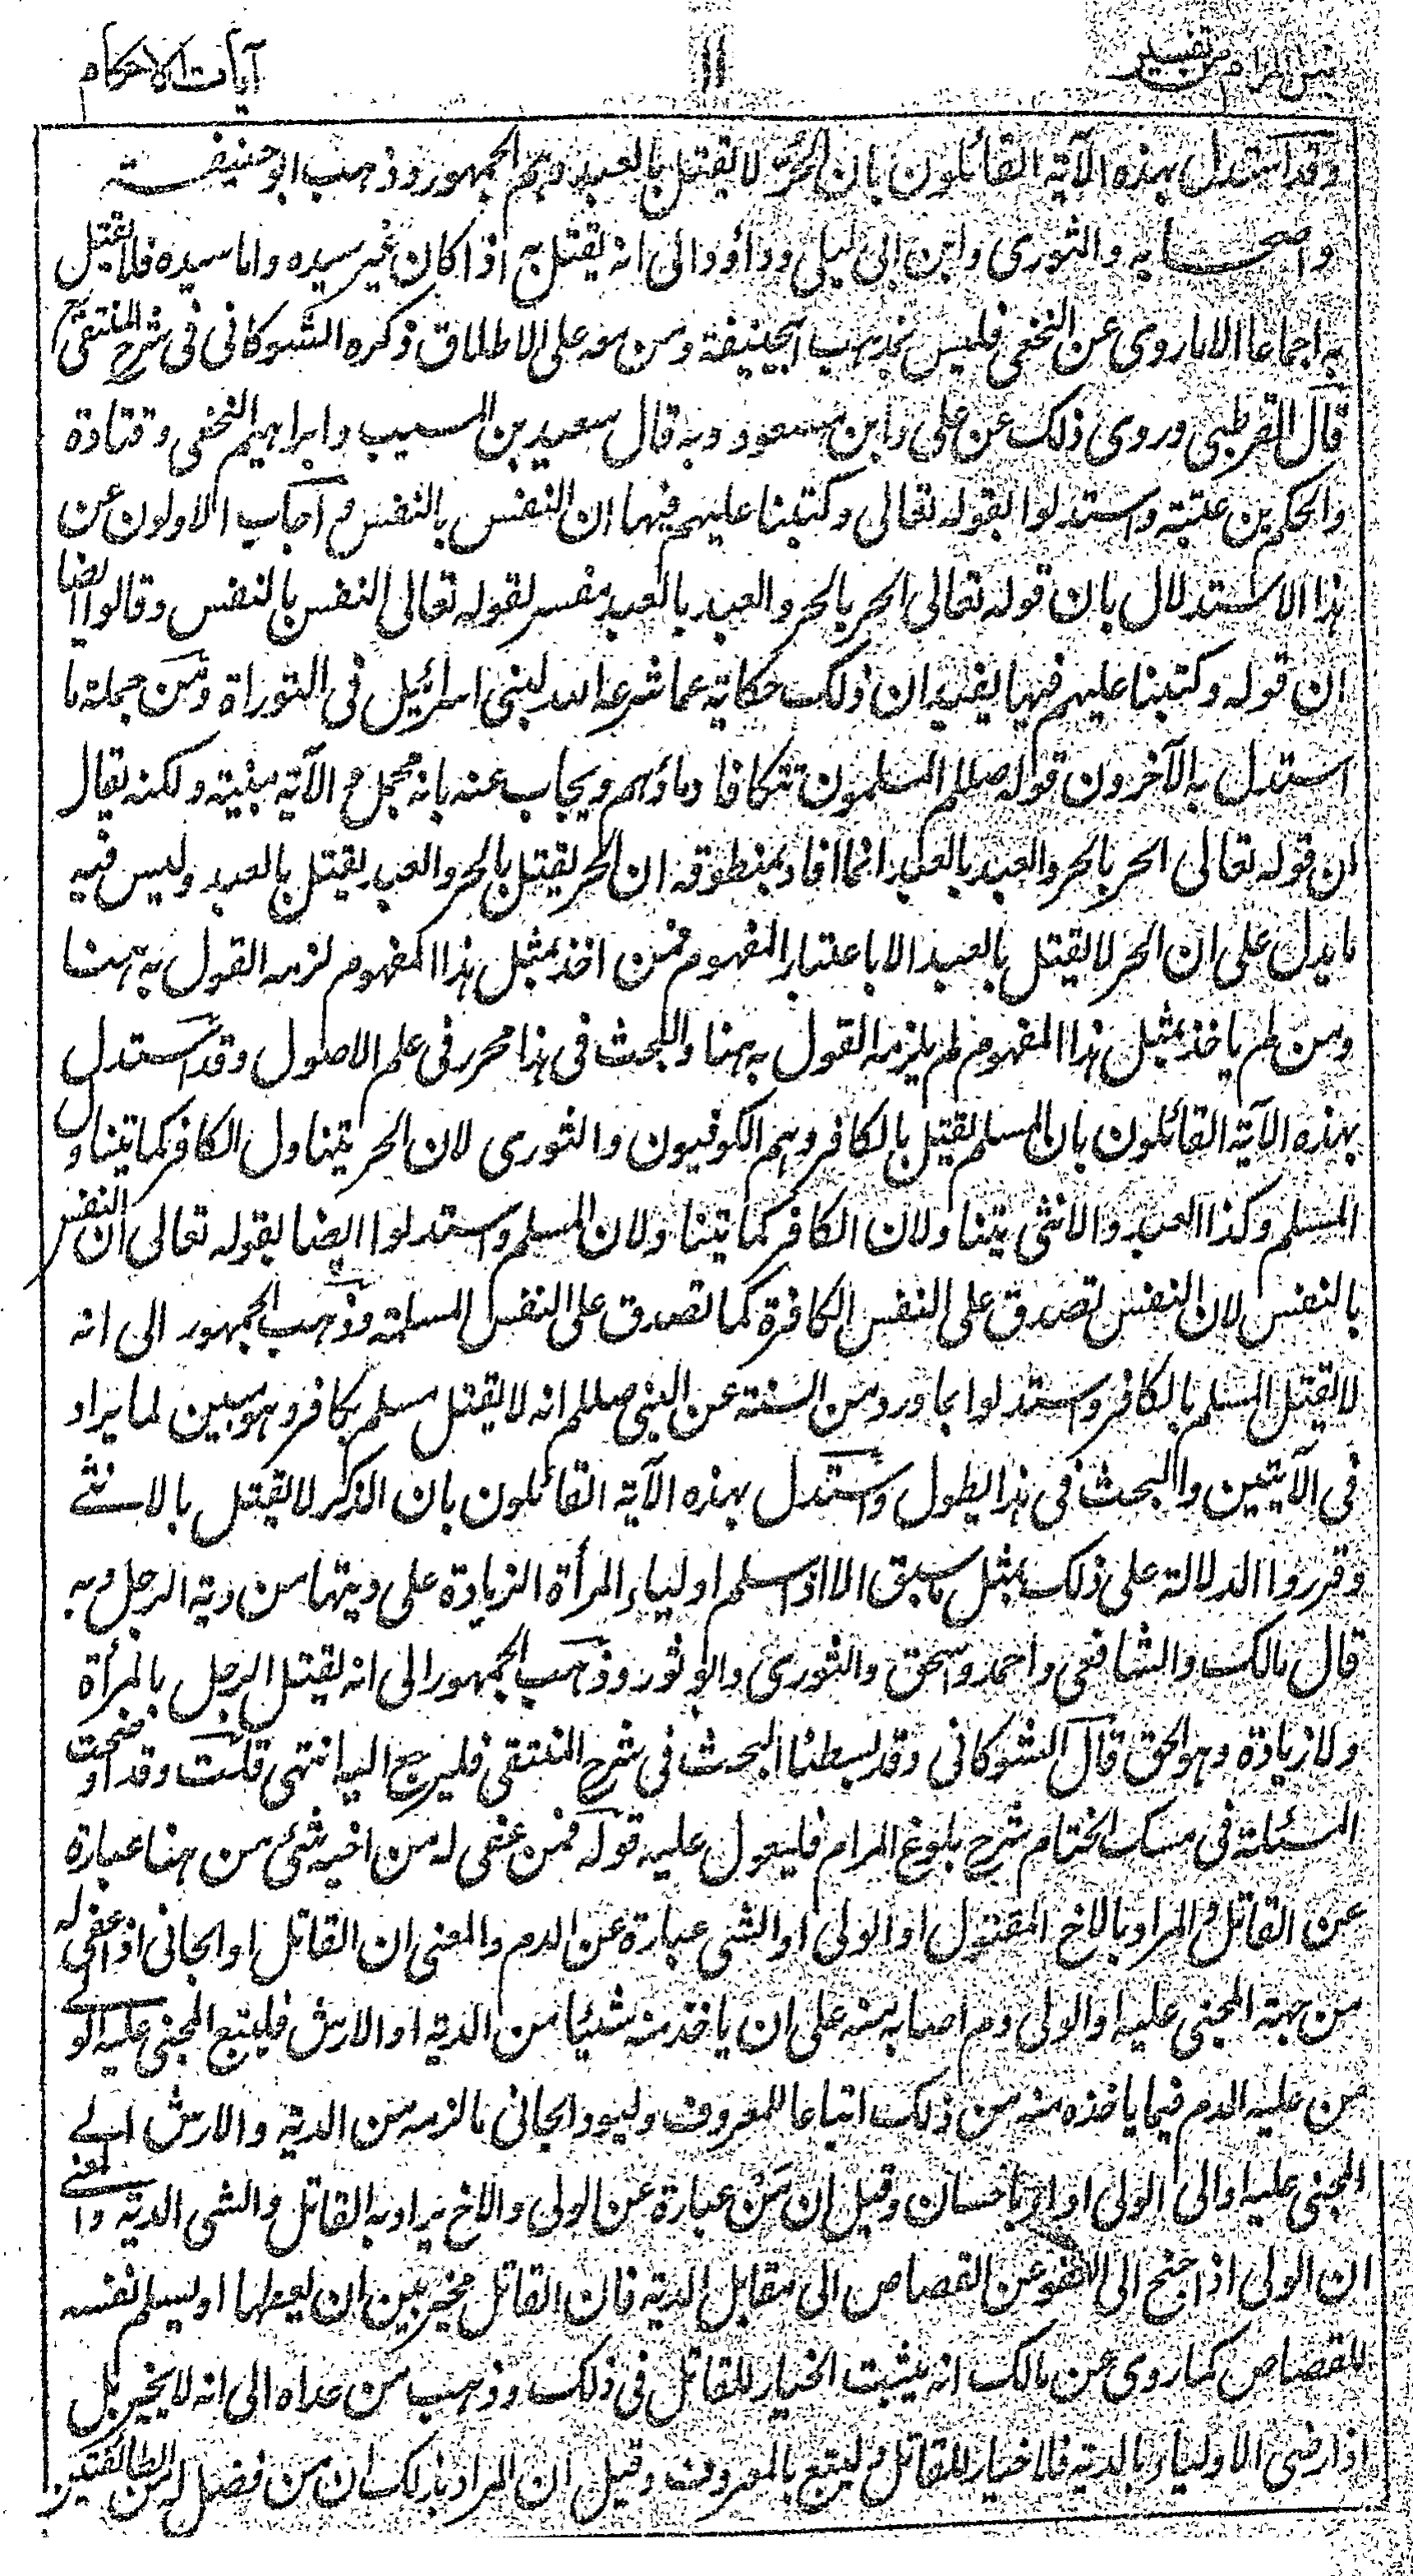 نيل المرام من تفسير
١١
آيات الاحكام
وقد استدل بهذه الآية القائلون بان الحر لا يقتل بالعبد وهم الجمهور وذهب ابو حنيفة
واصحابه والثورى وابن ابى ليلى وداؤد الى انه يقتل به اذا كان غير سيده واما سيده فلا يقتل
به اجماعا الا ما روى عن النخعى فليس مذهب ابيحنيفة ومن معه على الاطلاق ذكره الشوكانى فى شرح المنتقى
قال القرطبى وروى ذلك عن على وابن مسعود وبه قال سعيد بن المسيب وابراهيم النخعى وقتادة
والحكم بن عتبة واستدلوا بقوله تعالى وكتبنا عليهم فيها ان النفس بالنفس و اجاب الاولون عن
هذا الاستدلال بان قوله تعالى الحر بالحر والعبد بالعبد مفسر لقوله تعالى النفس بالنفس وقالوا ايضا
ان قوله وكتبنا عليهم فيها يفيد ان ذلك حكاية عما شرعه الله لبنى اسرائيل فى التوراة ومن جملة ما
استدل به الآخرون قوله صللم المسلمون تتكافا دماؤهم ويجاب عنه بانه مجمل و الآية مبنية ولكنه يقال
ان قوله تعالى الحر بالحر والعبد بالعبد انما افاد بمنطوقه ان الحر يقتل بالحر والعبد يقتل بالعبد وليس فيه
ما يدل على ان الحر لا يقتل بالعبد الا باعتبار المفهوم فمن اخذ بمثل هذا المفهوم لزمه القول به ههنا
ومن لم ياخذ بمثل هذا المفهوم لم يلزمه القول به ههنا والبحث فى هذا محرر فى علم الاصول وقد استدل
بهذه الآية القائلون بان المسلم يقتل بالكافر وهم الكوفيون والثورى لان الحر يتناول الكافر كما يتناول
المسلم وكذا العبد والانثى يتناولان الكافر كما يتناولان المسلم واستدلوا ايضا بقوله تعالى ان النفس
بالنفس لان النفس تصدق على النفس الكافرة كما تصدق على النفس المسلمة وذهب الجمهور الى انه
لا يقتل المسلم بالكافر واستدلوا بما ورد من السنة عن النبى صللم انه لا يقتل مسلم بكافر وهو مبين لما يراد
فى الآيتين والبحث فى هذا يطول واستدل بهذه الآية القائلون بان الذكر لا يقتل بالانثى
وقرروا الدلالة على ذلك بمثل ما سبق الا اذا سلم اولياء المرأة الزيادة على ديتها من دية الرجل وبه
قال مالك والشافعى واحمد واسحق والثورى وابو ثور وذهب الجمهور الى انه يقتل الرجل بالمرأة
ولا زيادة وهو الحق قال الشوكانى وقد بسطنا البحث فى شرح المنتقى فليرجع اليه انتهى قلت وقد اوضحت
المسئلة فى مسك الختام شرح بلوغ المرام فليعول عليه قوله فمن عفى له من اخيه شئ من هنا عبارة
عن القاتل و المراد بالاخ المقتول او الولى او الشى عبارة عن الدم والمعنى ان القاتل او الجانى اذا عفى له
من جهة المجنى عليه او الولى دم اصابه منه على ان ياخذ منه شيئا من الدية او الارش فليتبع المجنى عليه الو
من عليه الدم فيما ياخذه منه من ذلك اتباعا بالمعروف وليود الجانى ما لزمه من الدية والارش الے
المجنى عليه او الى الولى اداء باحسان وقيل ان من عبارة عن الولى والاخ يراد به القاتل والشى الدية والمعنے
ان الولى اذا جنح الى العفو عن القصاص الى مقابل الدية فان القاتل مخير بين ان يعطها او يسلم نفسه
للقصاص كما روى عن مالك انه يثبت الخيار للقاتل فى ذلك وذهب من عداه الى انه لا يخير بل
اذا رضى الاولياء بالدية فلا خيار للقاتل و ليتبع بالمعروف وقيل ان المراد بذلك ان من فضل له من الطائفتين